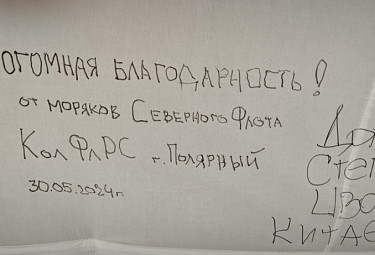 ОГОМНАЯ БЛАГОДАРНОСТЬ!
ОТ МОРЯКОВ СЕВЕРНОГО ФЛОТА
КолФлРС г. Полярный
30.05.2024г.
До
Сте
ЦВО
КИТАЕ